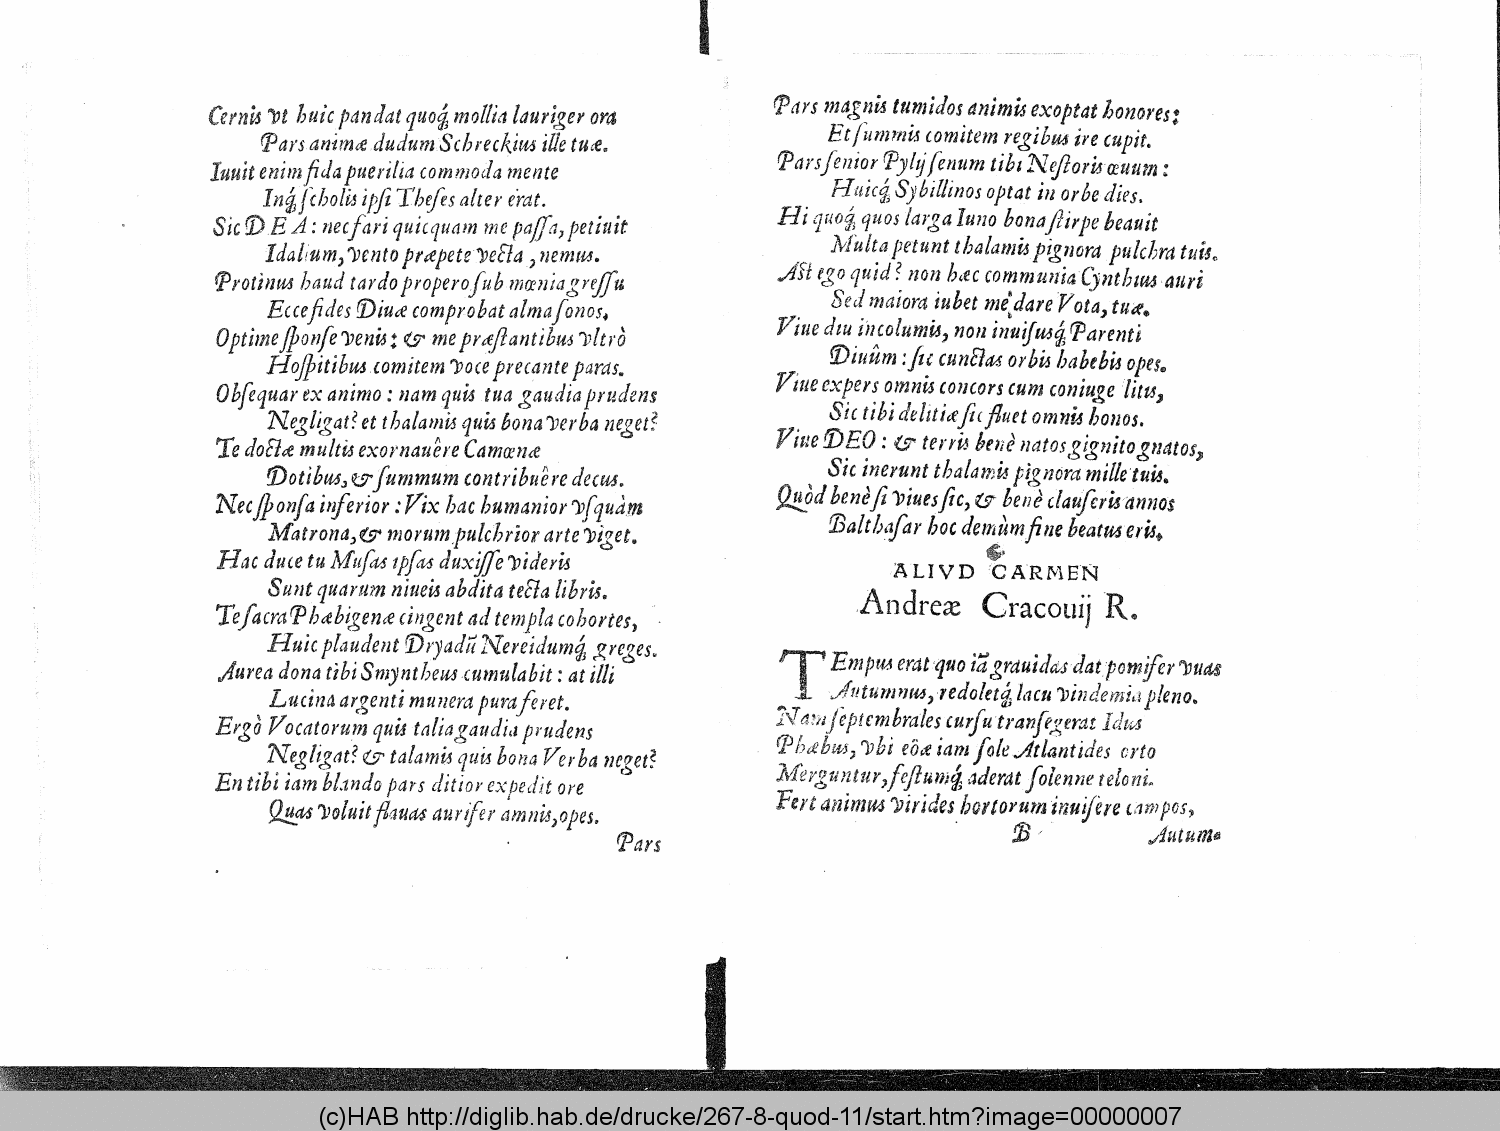 Cernis vt huic pandat quoq́; mollia lauriger ora
Pars animæ dudum Schreckius ille tuæ.
Iuuit enim fida puerilia commoda mente
Inq́; ſcholis ipſi Theſes alter erat.
Sic DEA: nec fari quicquam me paſſa, petiuit
Idalium, vento præpete vecta, nemus.
Protinus haud tardo propero ſub mœnia greſſu
Ecce fides Diuæ comprobat alma ſonos.
Optime ſponſe venis: & me præſtantibus vltrò
Hoſpitibus comitem voce precante paras.
Obſequar ex animo: nam quis tua gaudia prudens
Negligat? et thalamis quis bona verba neget?
Te doctæ multis exornauêre Camœnæ
Dotibus, & ſummum contribuêre decus.
Nec ſponſa inferior: Vix hac humanior vſquàm
Matrona, & morum pulchrior arte viget.
Hac duce tu Muſas ipſas duxiſſe videris
Sunt quarum niueis abdita tecta libris.
Te ſacra Phæbigenæ cingent ad templa cohortes,
Huic plaudent Dryadũ Nereidumq́; greges.
Aurea dona tibi Smyntheus cumulabit: at illi
Lucina argenti munera pura feret.
Ergò Vocatorum quis talia gaudia prudens
Negligat? & talamis quis bona Verba neget?
En tibi iam blando pars ditior expedit ore
Quas voluit flauas aurifer amnis, opes.
Pars
Pars magnis tumidos animis exoptat honores:
Et ſummis comitem regibus ire cupit.
Pars ſenior Pylij ſenum tibi Neſtoris œuum:
Huicq́; Sybillinos optat in orbe dies.
Hi quoq́; quos larga Iuno bona ſtirpe beauit
Multa petunt thalamis pignora pulchra tuis.
Aſt ego quid? non hæc communia Cynthius auri
Sed maiora iubet me dare Vota, tuæ.
Viue diu incolumis, non inuiſusq́; Parenti
Diuûm: ſic cunctas orbis habebis opes.
Viue expers omnis concors cum coniuge litis,
Sic tibi delitiæ ſic fluet omnis honos.
Viue DEO: & terris benè natos gignito gnatos,
Sic inerunt thalamis pignora mille tuis.
Quòd benè ſi viues ſic, & benè clauſeris annos
Balthaſar hoc demùm fine beatus eris.
ALIVD CARMEN
Andreæ Cracouij R.
TEmpus erat quo iã grauidas dat pomifer vuas
Autumnus, redoletq́; lacu vindemia pleno.
Nam ſeptembrales curſu tranſegerat Idus
Phæbus, vbi eôæ iam ſole Atlantides orto
Merguntur, feſtumq́; aderat ſolenne teloni.
Fert animus virides hortorum inuiſere campos,
B
Autum-
(c)HAB http://diglib.hab.de/drucke/267-8-quod-11/start.htm?image=00000007